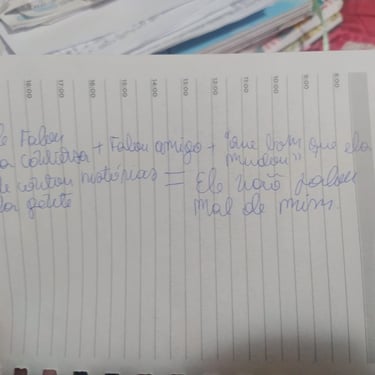 16:00 17:00 16:00 15:00 14:00 13:00 12:00 11:00 10:00 9:00 8:00
e Falou
a conversa + Falou comigo + "que bom que ela
mudou"
le contou histórias = Ele não falou
da gente mal de mim.